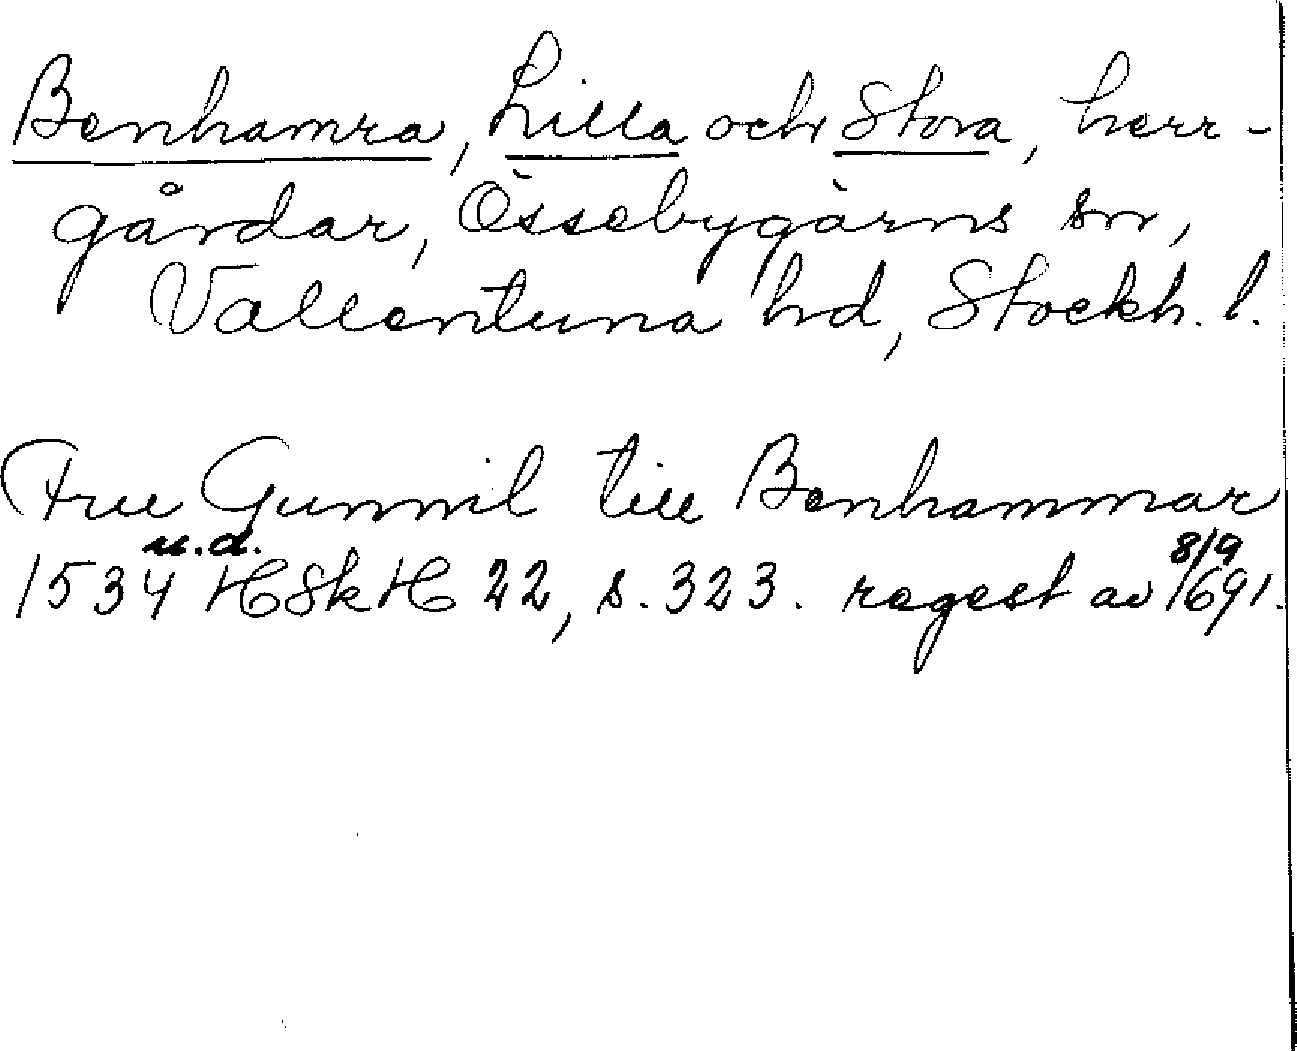 Benhamra, Lilla och Stora, herr-
gårdar, Össebygarns sn,
Vallentuna hd, Stockh. l.
Fru Gunnil till Benhammar
u.d. 8/9
1534 HSkH 22, s. 323. regest av 1691.